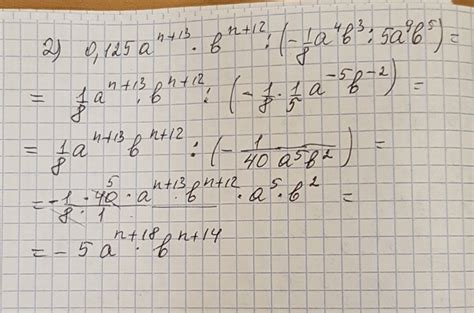 2) 0,125a^{n+13} · b^{n+12} : (-\frac{1}{8}a^4b^3 : 5a^9b^5) =
= \frac{1}{8}a^{n+13} · b^{n+12} : (-\frac{1}{8} · \frac{1}{5}a^{-5}b^{-2}) =
= \frac{1}{8}a^{n+13}b^{n+12} : (-\frac{1}{40a^5b^2}) =
= \frac{-1 · 40^5 · a^{n+13} · b^{n+12}}{8 · 1} · a^5 · b^2 =
= -5a^{n+18} · b^{n+14}